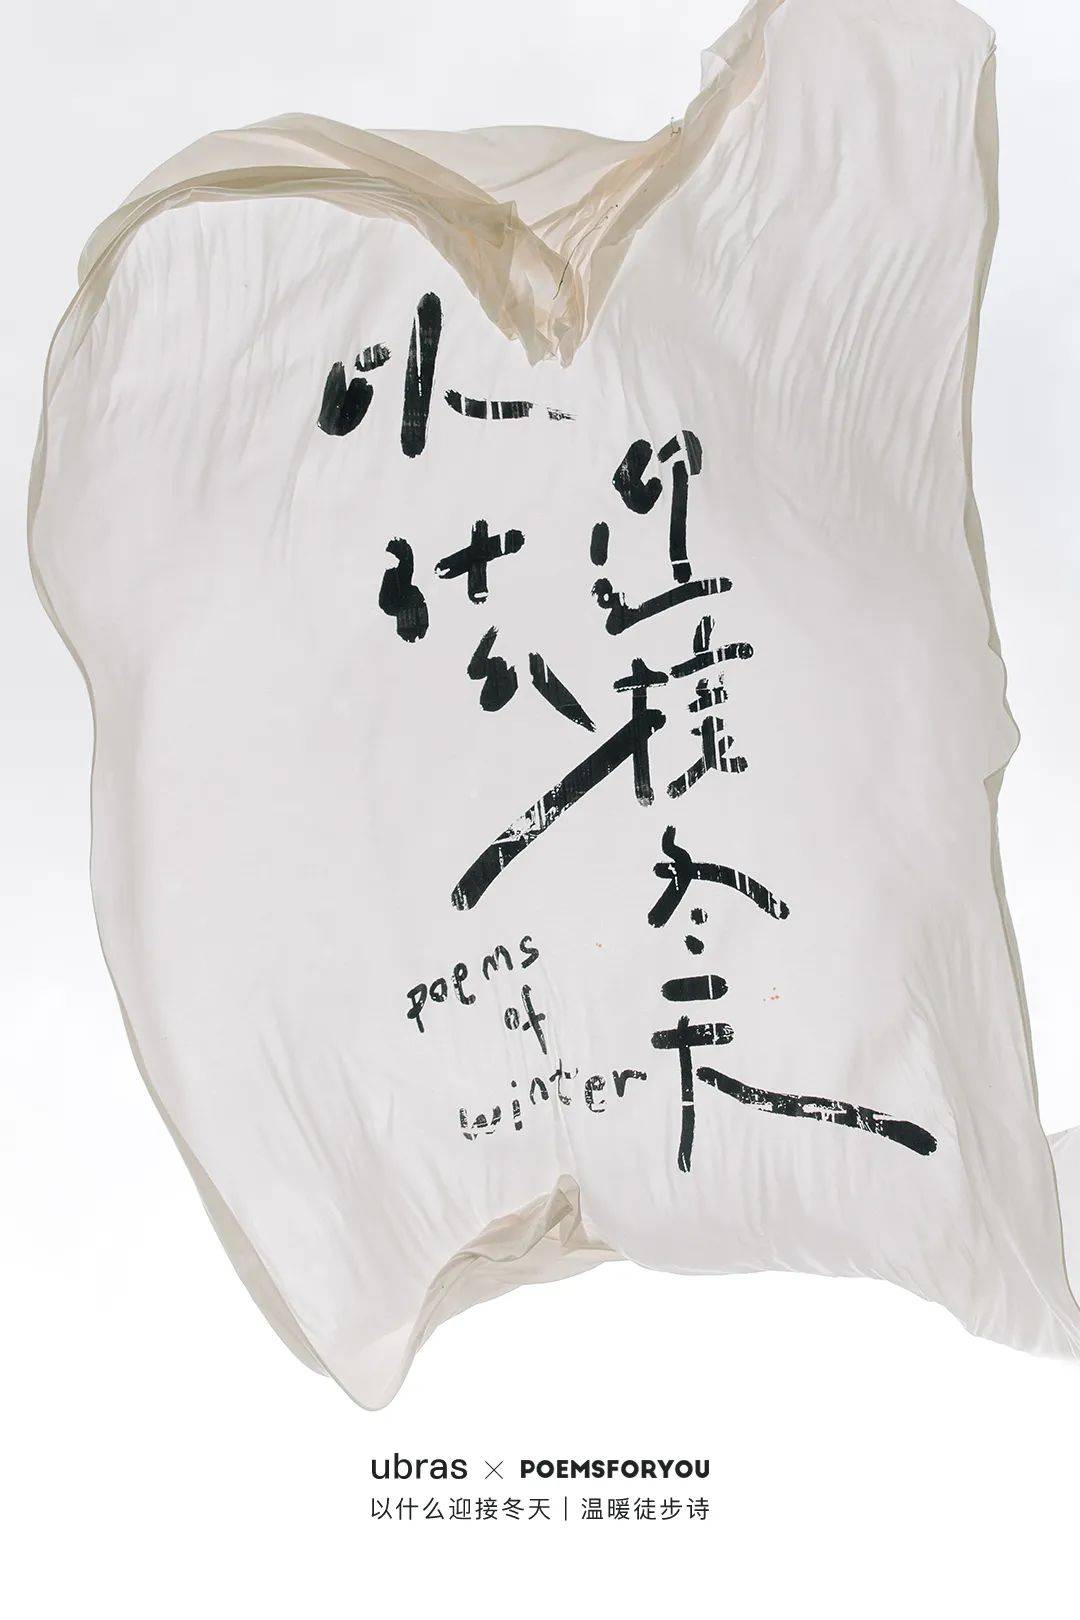 以
什么
迎接
冬天
poems
of
winter
ubras × POEMSFORYOU
以什么迎接冬天｜温暖徒步诗